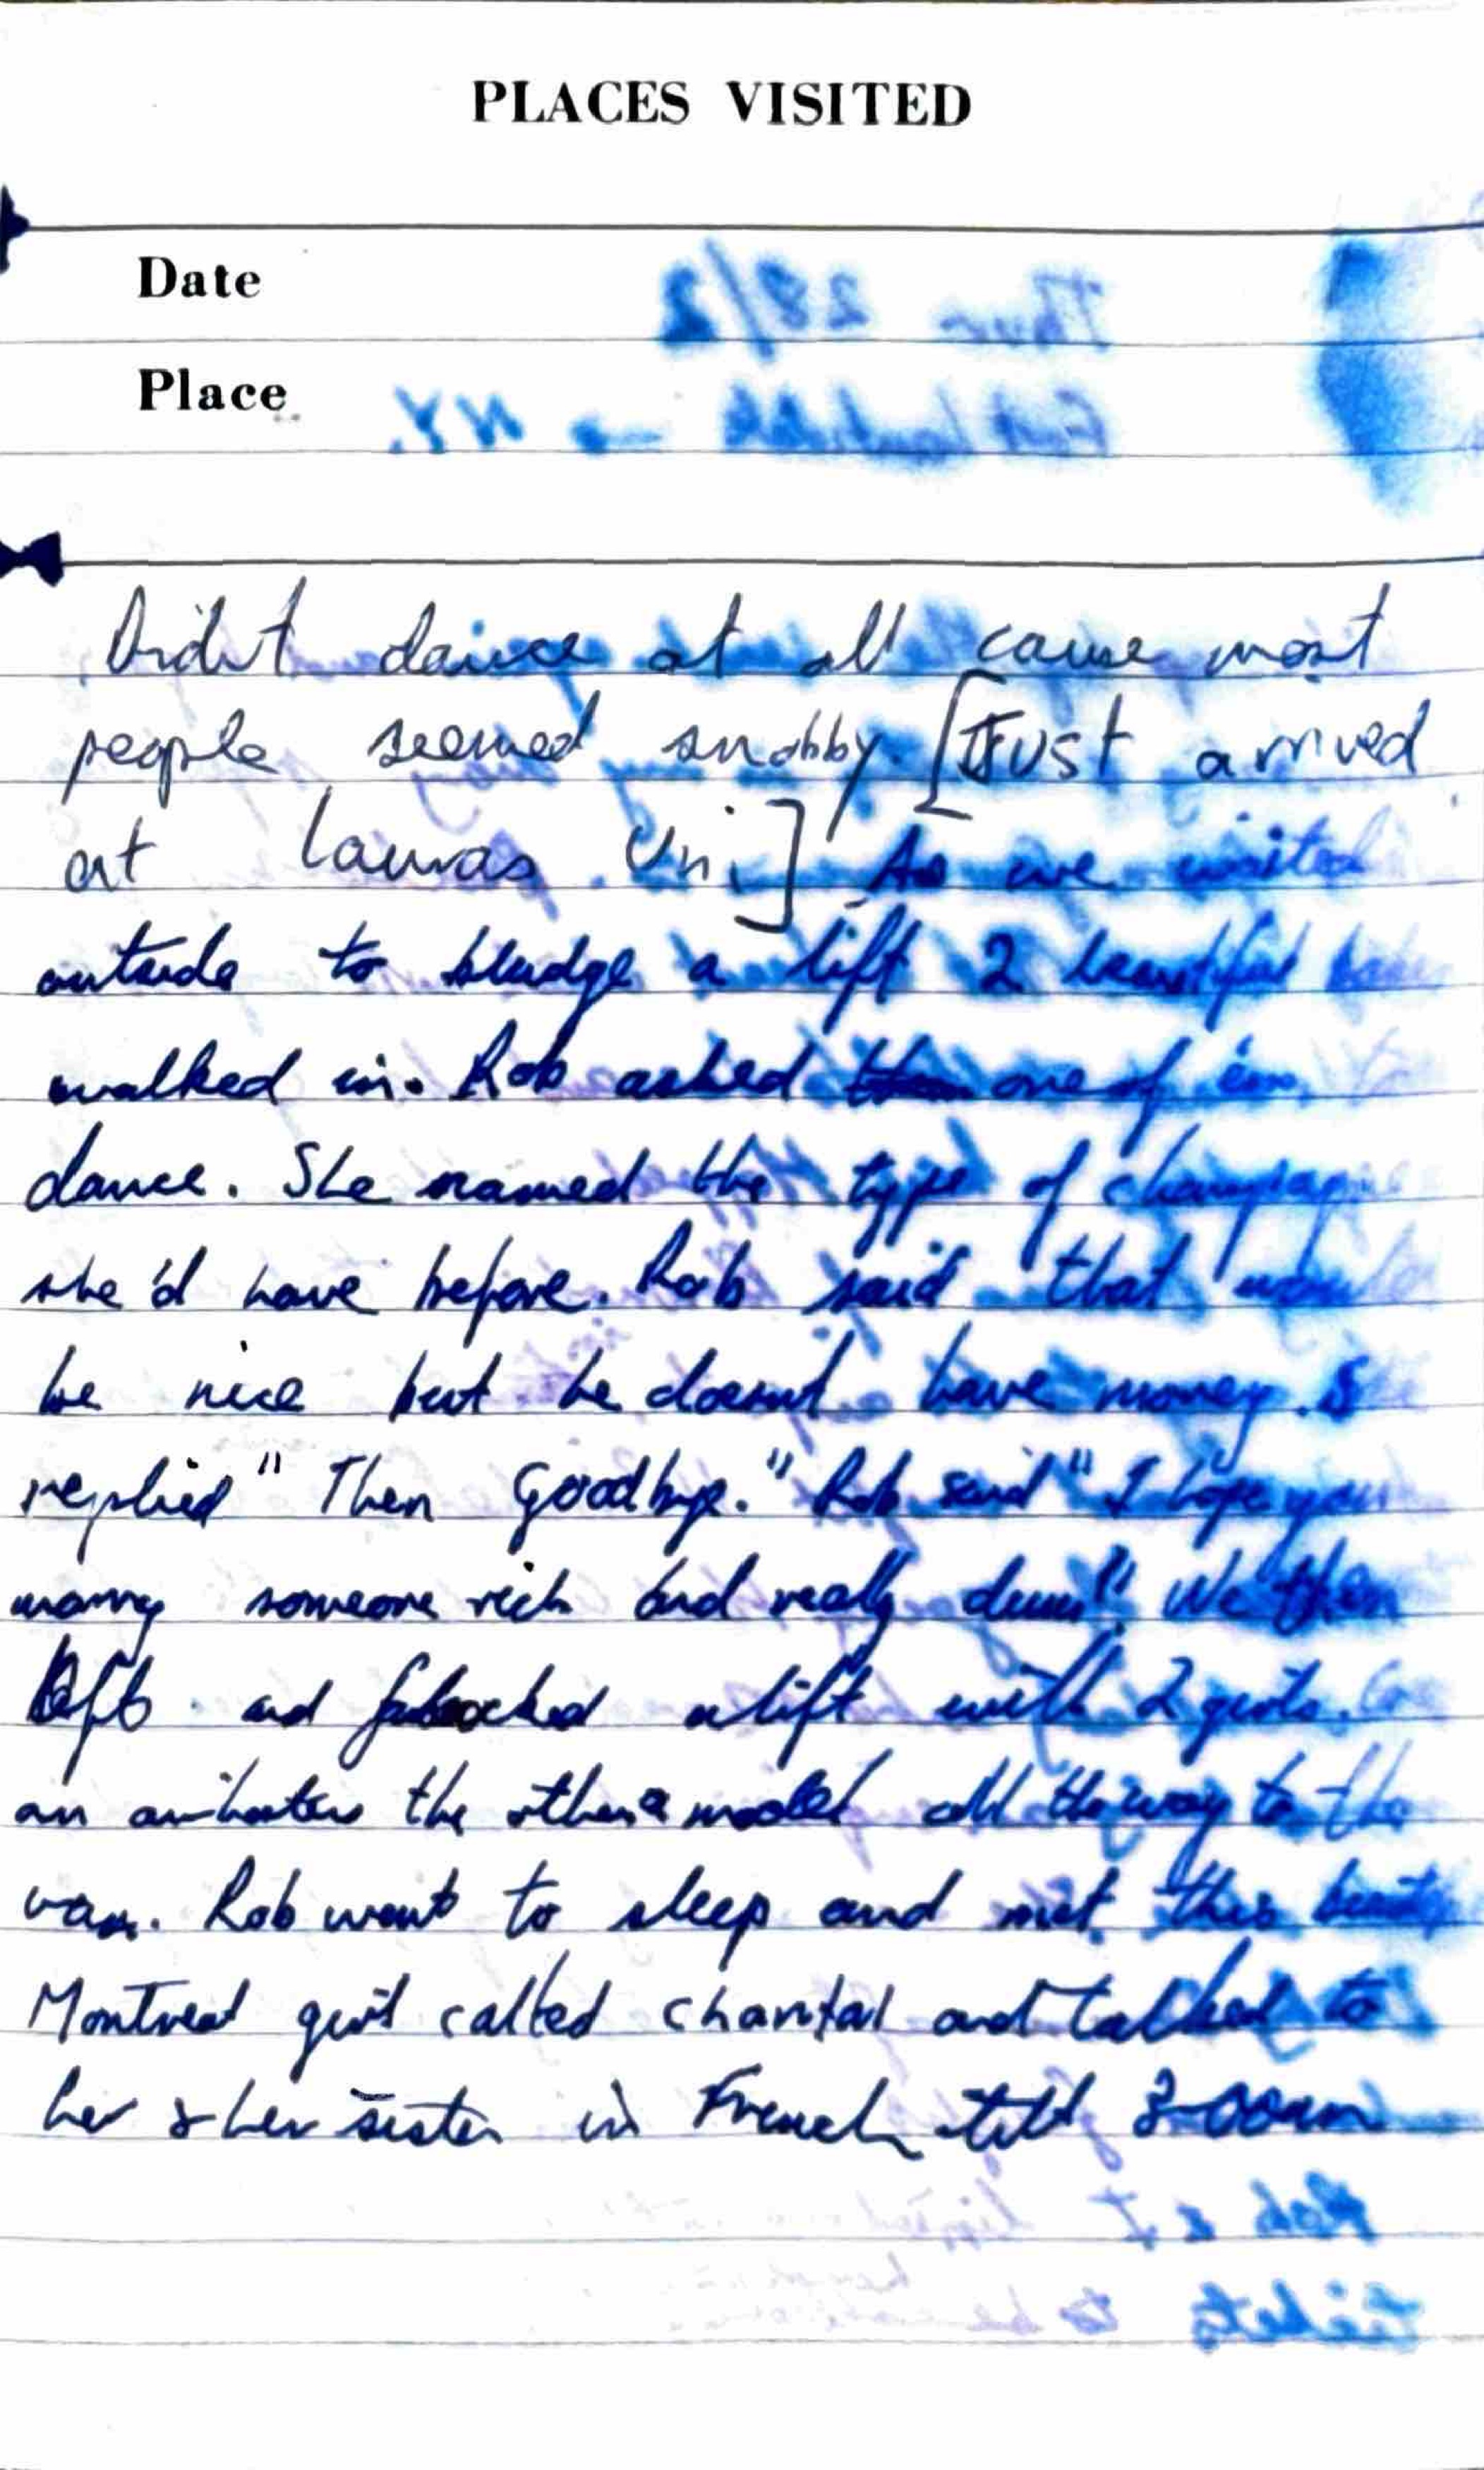 PLACES VISITED
Date
Place
Didn't dance at all cause most
people seemed snobby. [Just arrived
at Lauras Uni] As we waited
outside to bludge a lift 2 beautiful
walked in. Rob asked one of em
dance. She named the type of champagne
she'd have before. Rob said that would
be nice but he doesnt have money. S
replied "Then Goodbye." Rob said "I hope you
marry someone rich and really dumb". We then
left and a lift with 2 girls.
an the other a model all the way to the
van. Rob went to sleep and met this
Montreal girl called Chantal and talked to
her & her sister in French till 3-00am